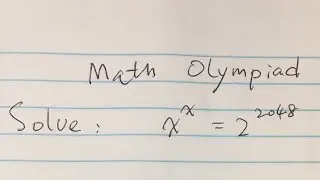 Math Olympiad
Solve : x^x = 2^2048